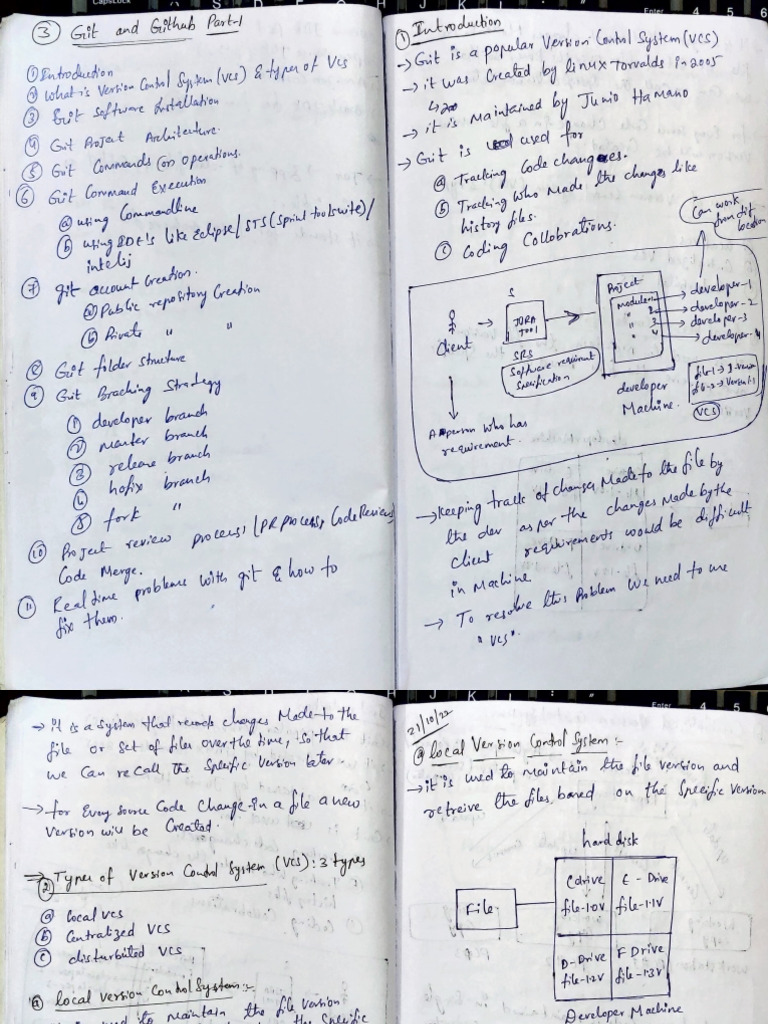 ③ Git and Github Part-1
① Introduction
② What is Version Control System (VCS) & types of VCS
③ Git Software Installation
④ Git Project Architecture.
⑤ Git Commands (or) operations.
⑥ Git Command Execution
ⓐ using Commandline
ⓑ using IDE's like Eclipse/STS (Sprint toolsuite)/
intelij
⑦ git account Creation.
ⓐ Public repository Creation
ⓑ Private " "
⑧ Git filder structure
⑨ Git Braching Strategy
① developer branch
② master branch
③ release branch
④ hofix branch
⑤ fork "
⑩ Project review process (PR process, Code Reviews)
Code Merge.
⑪ Realtime problems with git & how to
fix them.
① Introduction
→ Git is a popular Version Control System (VCS)
→ it was Created by linux Torvalds in 2005
→ it is Maintained by Junio Hamano
→ Git is used for
ⓐ Tracking Code changes.
ⓑ Tracking who made the changes like
history files.
ⓒ Coding Collobrations.
Can work
from dif
location
Client
JIRA
TOOL
SRS
Software requirment
Specification
Project
Modules
" 2
" 3
" 4
developer-1
developer-2
developer-3
developer-4
developer
Machine.
VCS
A person who has
requirement.
→ Keeping track of changes Made to the file by
the dev as per the changes Made by the
client requirements would be difficult
in Machine
→ To resolve this Problem we need to use
"VCS".
→ it is a System that records changes Made to the
file or set of files over the time, so that
we Can recall the Specific Version later
→ for Every source Code Change in a file a new
Version will be Created.
⇒ ② Types of Version Control System (VCS): 3 types
ⓐ local VCS
ⓑ Centralized VCS
ⓒ disturbited VCS
ⓐ local version Control System:-
to maintain the file version
the Specific
21/10/22
ⓐ local Version Control System:-
→ it is used to maintain the file version and
retreive the files based on the Specific Version
hard disk
File
C drive
file-1.0V
E - Drive
file-1.1V
D-Drive
file-1.2V
F Drive
file-1.3V
Developer Machine